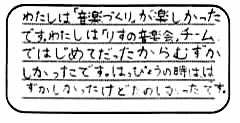 わたしは「音楽づくり」が楽しかった
です。わたしは「りすの音楽会」チーム
ではじめてだったからむずか
しかったです。はっぴょうの時はは
ずかしかったけどたのしかったです。